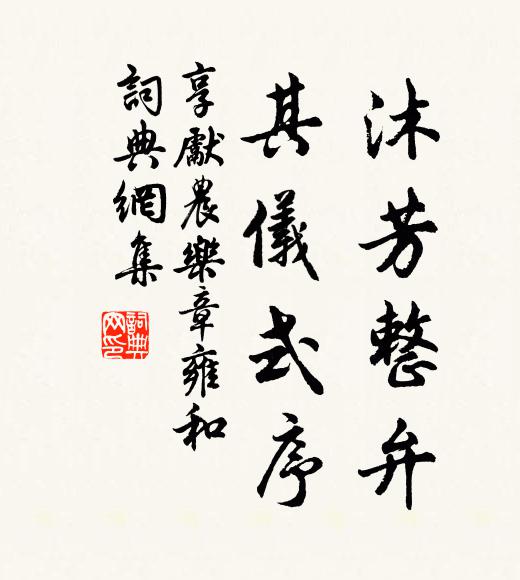 沐芳整弁
其儀式序
享獻農樂章雍和
詞典網集
詞典网印